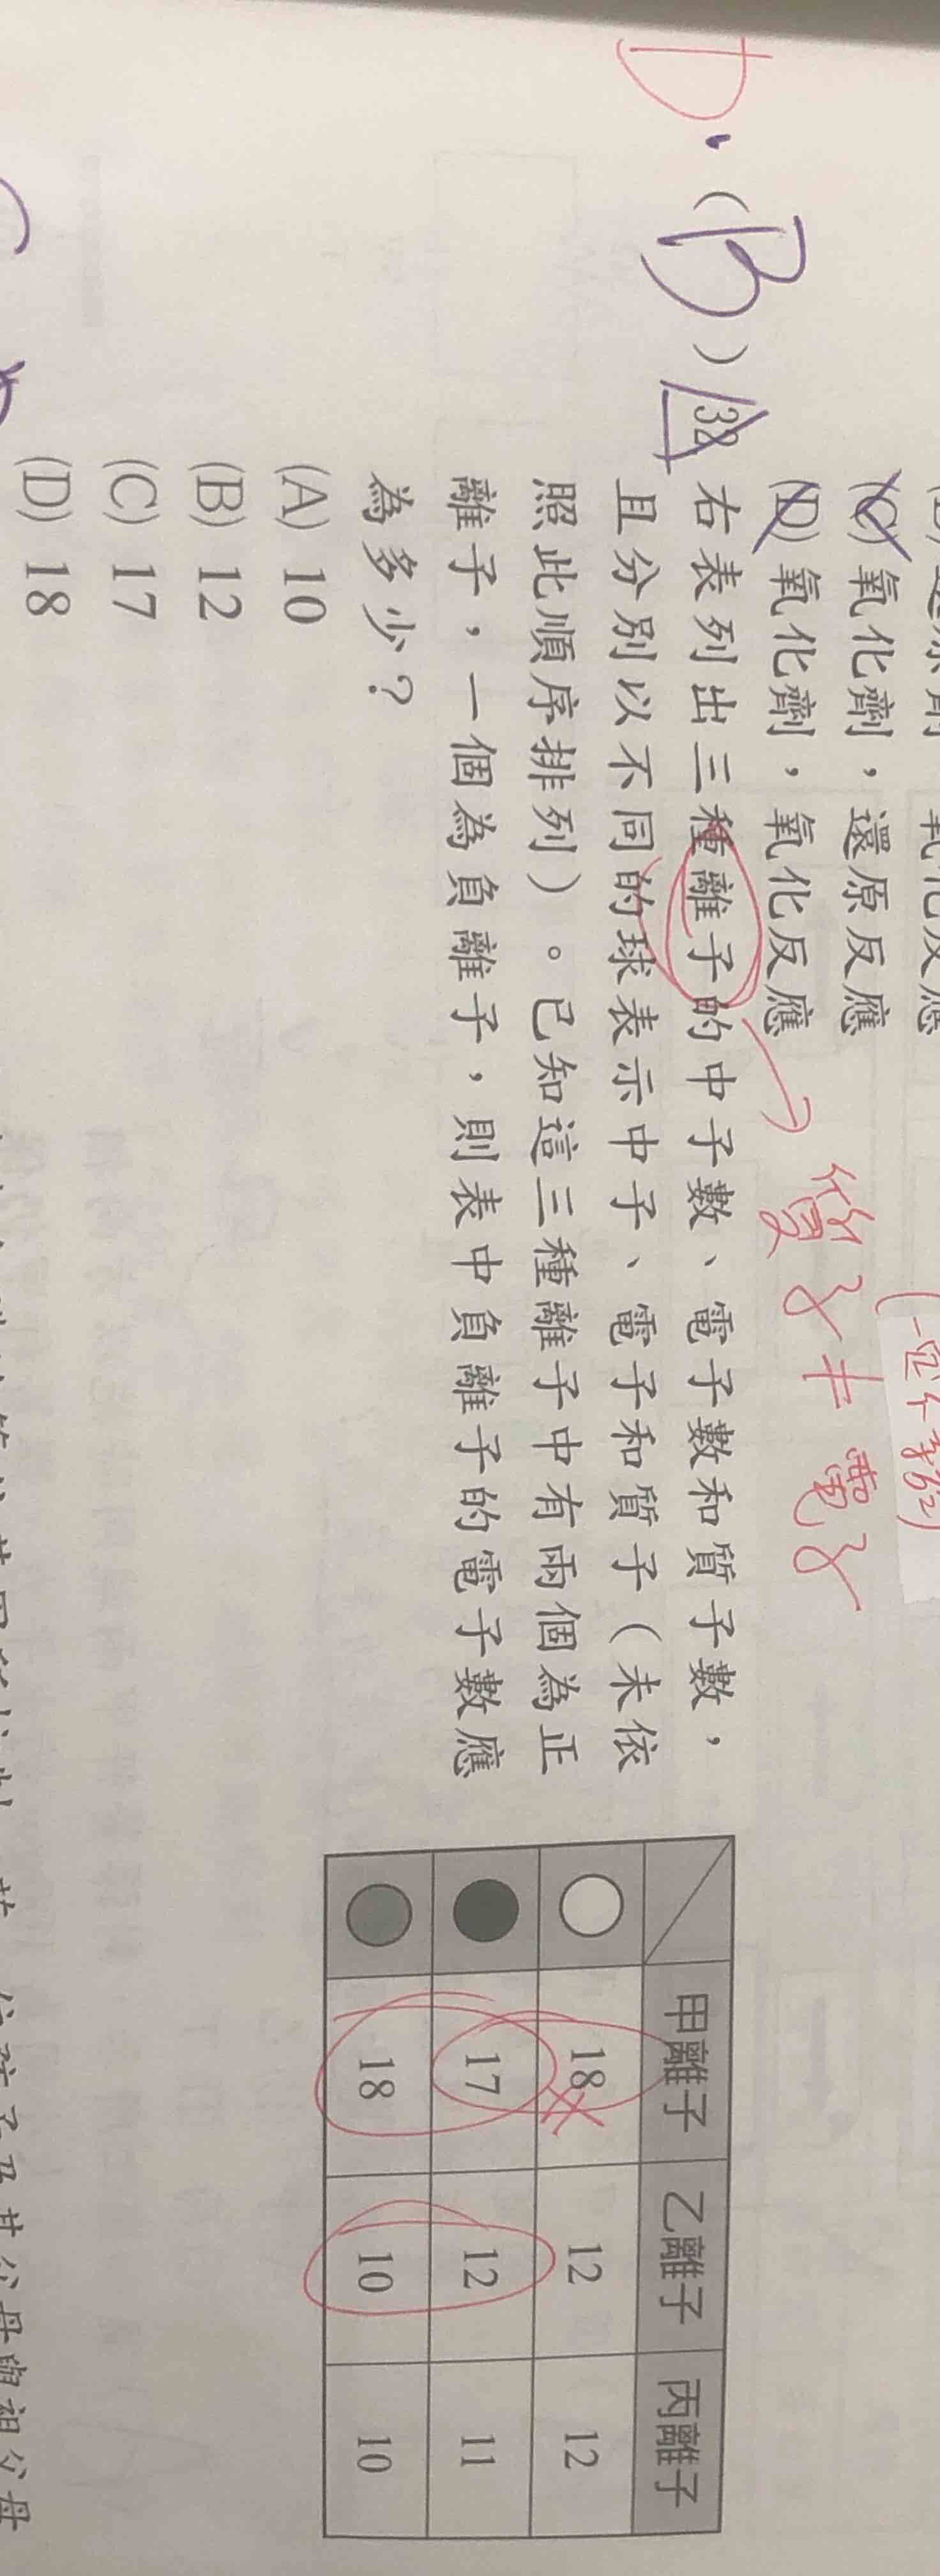 (C) 氧化劑，還原反應
(D) 氧化劑，氧化反應
質子≠電子
D.
(B) 32
右表列出三種離子的中子數、電子數和質子數，
且分別以不同的球表示中子、電子和質子（未依
照此順序排列）。已知這三種離子中有兩個為正
離子，一個為負離子，則表中負離子的電子數應
為多少？
(A) 10
(B) 12
(C) 17
(D) 18
甲離子 乙離子 丙離子
18 12 12
17 12 11
18 10 10